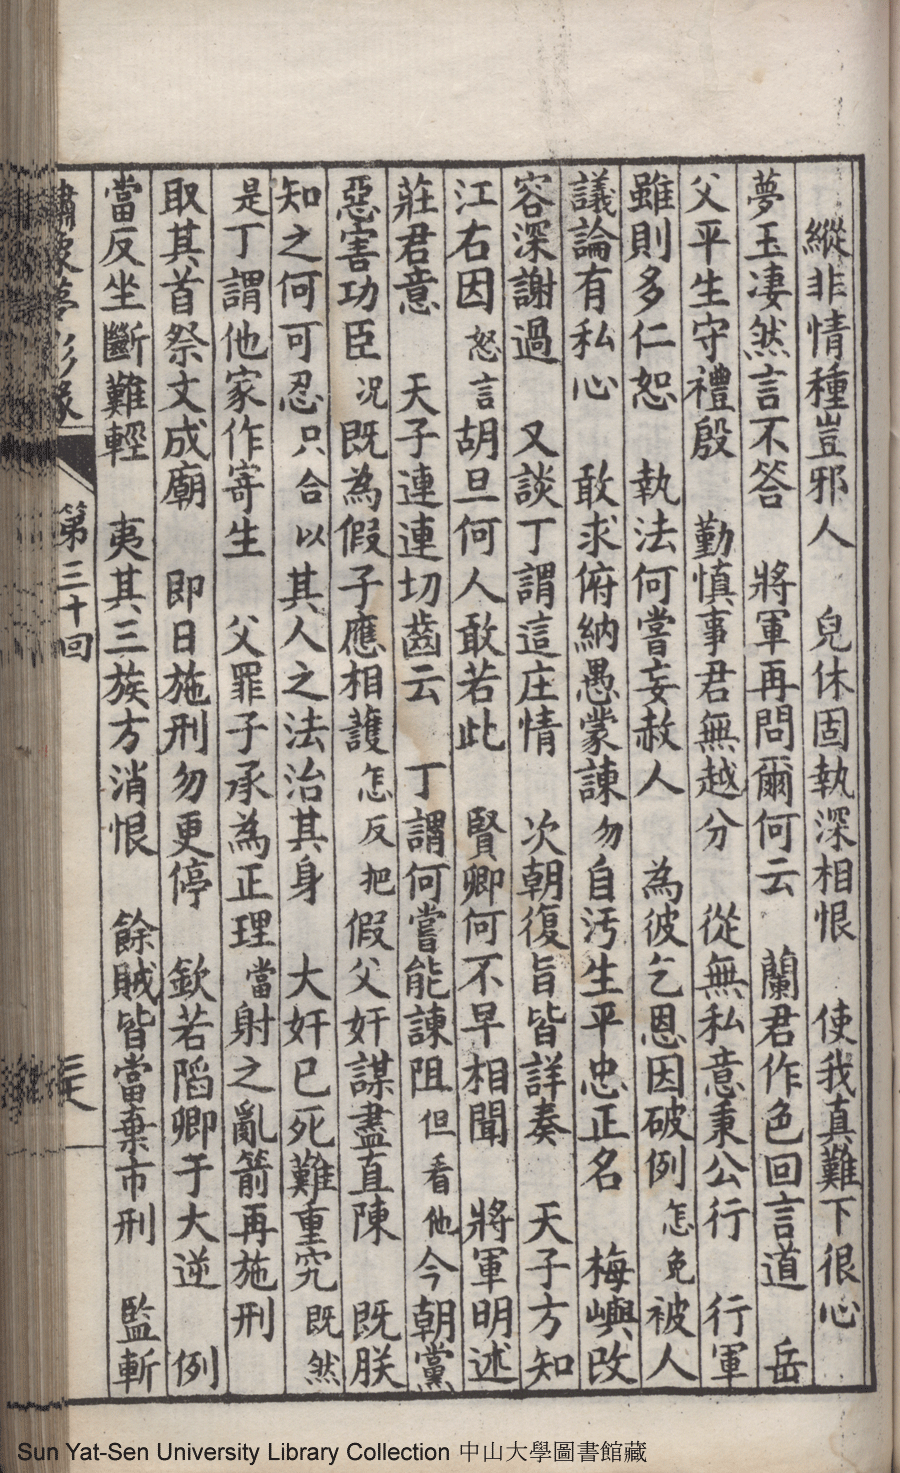 縱非情種豈邪人　兒休固執深相恨　使我真難下很心
夢玉淒然言不答　將軍再問爾何云　蘭君作色回言道　岳
父平生守禮殷　勤慎事君無越分　從無私意秉公行　行軍
雖則多仁恕　執法何嘗妄赦人　為彼乞恩因破例　怎免被人
議論有私心　敢求俯納愚蒙諫　勿自污生平忠正名　梅嶼改
容深謝過　又談丁謂這庄情　次朝復旨皆詳奏　天子方知
江右因　怒言胡旦何人敢若此　賢卿何不早相聞　將軍明述
莊君意　天子連連切齒云　丁謂何嘗能諫阻　但看他今朝黨
惡害功臣　況既為假子應相護　怎反把假父奸謀盡直陳　既朕
知之何可忍　只合以其人之法治其身　大奸已死難重究　既然
是丁謂他家作寄生　父罪子承為正理　當射之亂箭再施刑
取其首祭文成廟　即日施刑勿更停　欽若陷卿于大逆　例
當反坐斷難輕　夷其三族方消恨　餘賊皆當棄市刑　監斬
第三十回
Sun Yat-Sen University Library Collection 中山大學圖書館藏